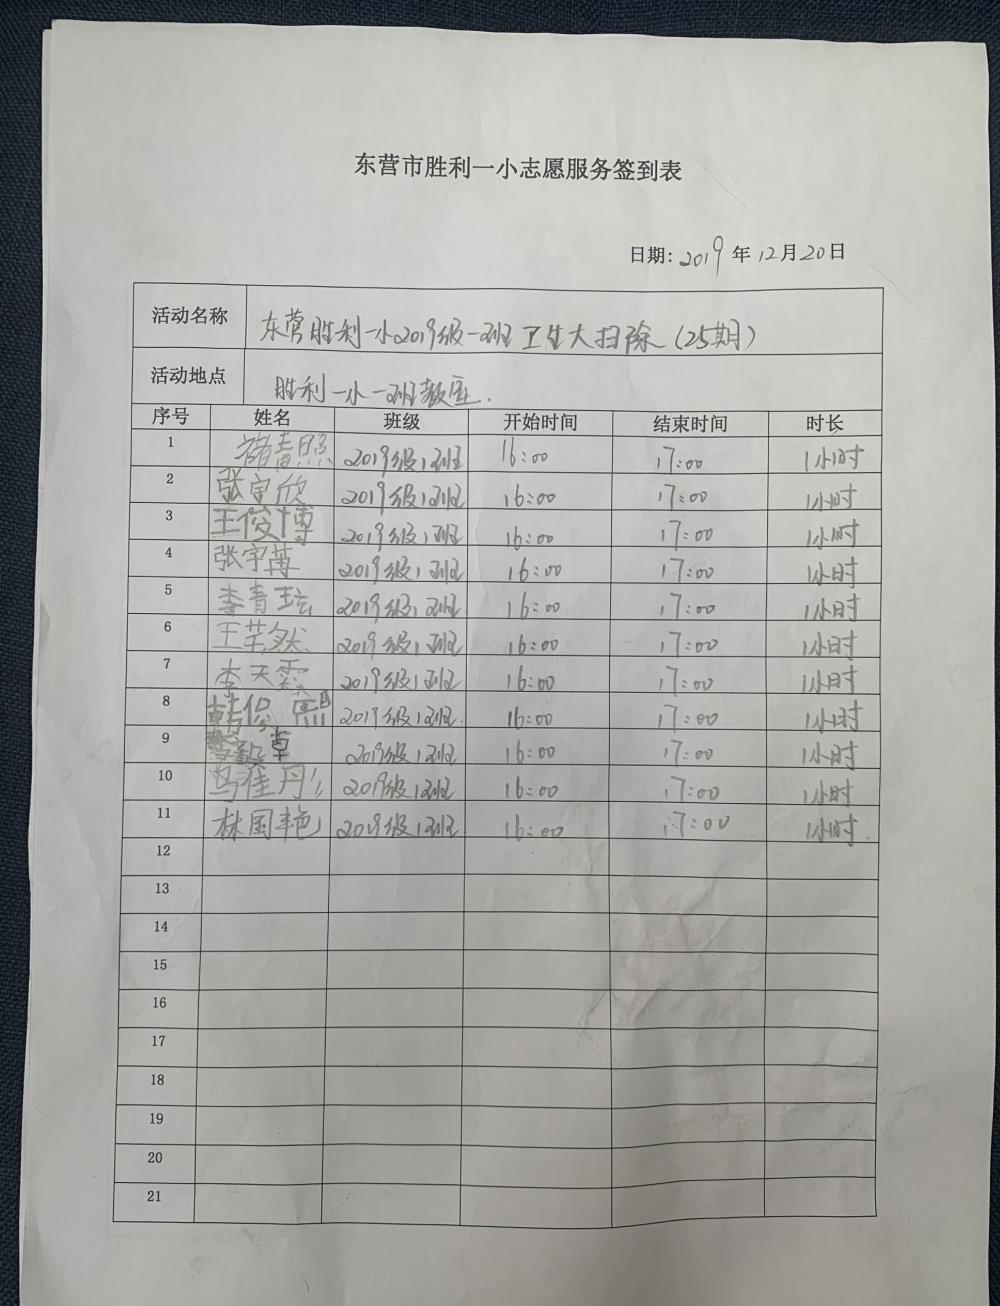 东营市胜利一小志愿服务签到表
日期: 2019 年 12月20日
活动名称 东营胜利一小2019级一班卫生大扫除(25期)
活动地点 胜利一小一班教室.
序号 姓名 班级 开始时间 结束时间 时长
1 褚春熙 2019级1班 16:00 17:00 1小时
2 张宇欣 2019级1班 16:00 17:00 1小时
3 王俊博 2019级1班 16:00 17:00 1小时
4 张宇苒 2019级1班 16:00 17:00 1小时
5 李青玹 2019级1班 16:00 17:00 1小时
6 王芊然 2019级1班 16:00 17:00 1小时
7 李天霖 2019级1班 16:00 17:00 1小时
8 韩俊熙 2019级1班 16:00 17:00 1小时
9 2019级1班 16:00 17:00 1小时
10 马佳彤 2019级1班 16:00 17:00 1小时
11 林国艳 2019级1班 16:00 17:00 1小时
12
13
14
15
16
17
18
19
20
21